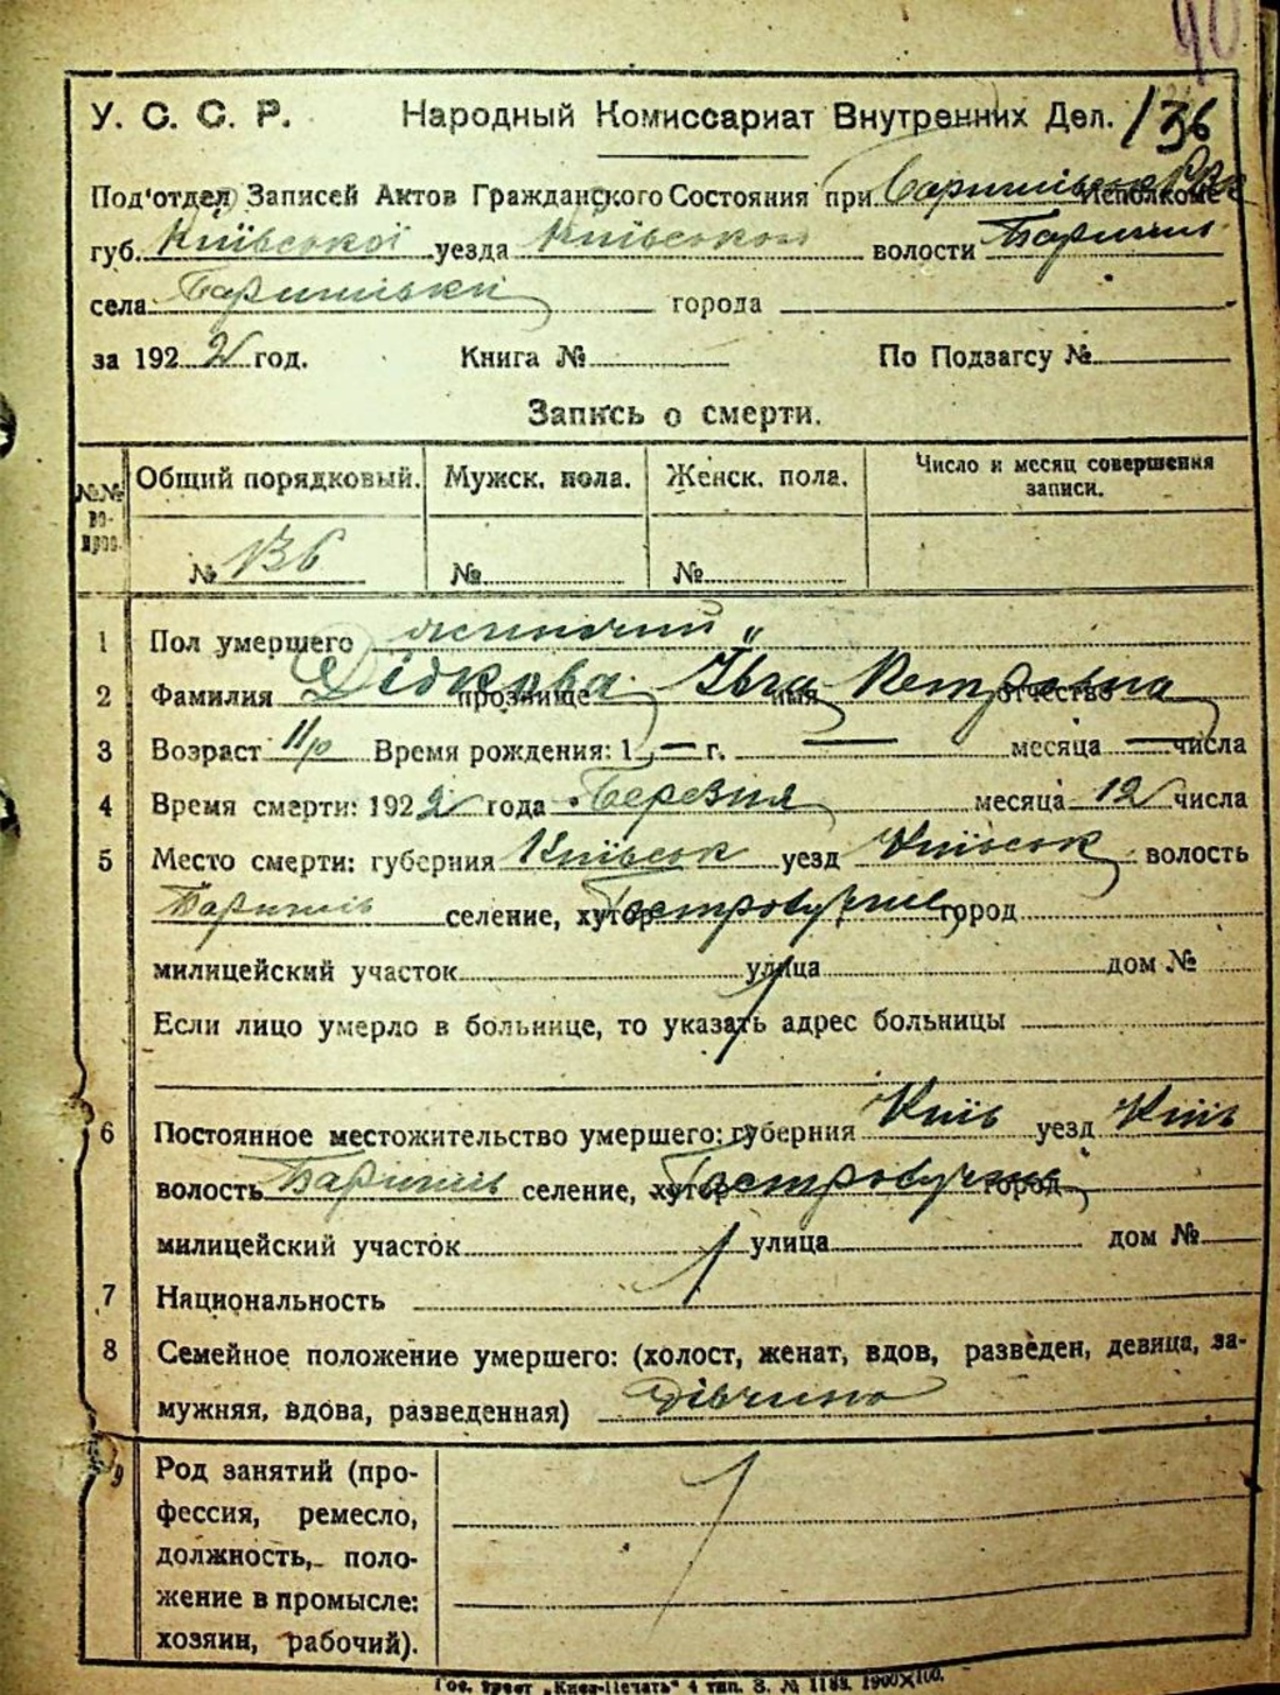 40
У. С. С. Р. Народный Комиссариат Внутренних Дел. 136
Под'отдел Записей Актов Гражданского Состояния при Исполкоме
губ. Київської уезда Київського волости Баришп.
села Баришівки города
за 1922 год. Книга № По Подзагсу №
Запись о смерти.
№№ во-прос. Общий порядковый. Мужск. пола. Женск. пола. Число и месяц совершения записи.
№ 136 № №
1 Пол умершего жиночий "
2 Фамилия Дідкова прозвище Івга имя Петровна отчество
3 Возраст 11 р Время рождения: 1 — г. — месяца — числа
4 Время смерти: 1922 года Березня месяца 12 числа
5 Место смерти: губерния Київськ уезд Київськ волость
селение, хутор город
милицейский участок улица дом №
Если лицо умерло в больнице, то указать адрес больницы
6 Постоянное местожительство умершего: губерния Київ уезд Київ
волость селение, хутор город
милицейский участок улица дом №
7 Национальность
8 Семейное положение умершего: (холост, женат, вдов, разведен, девица, за-
мужняя, вдова, разведенная) Дівчина
9 Род занятий (про-
фессия, ремесло,
должность, поло-
жение в промысле:
хозяин, рабочий).
Гос. трест „Киев-Печать" 4 тип. З. № 1188. 1900×100.